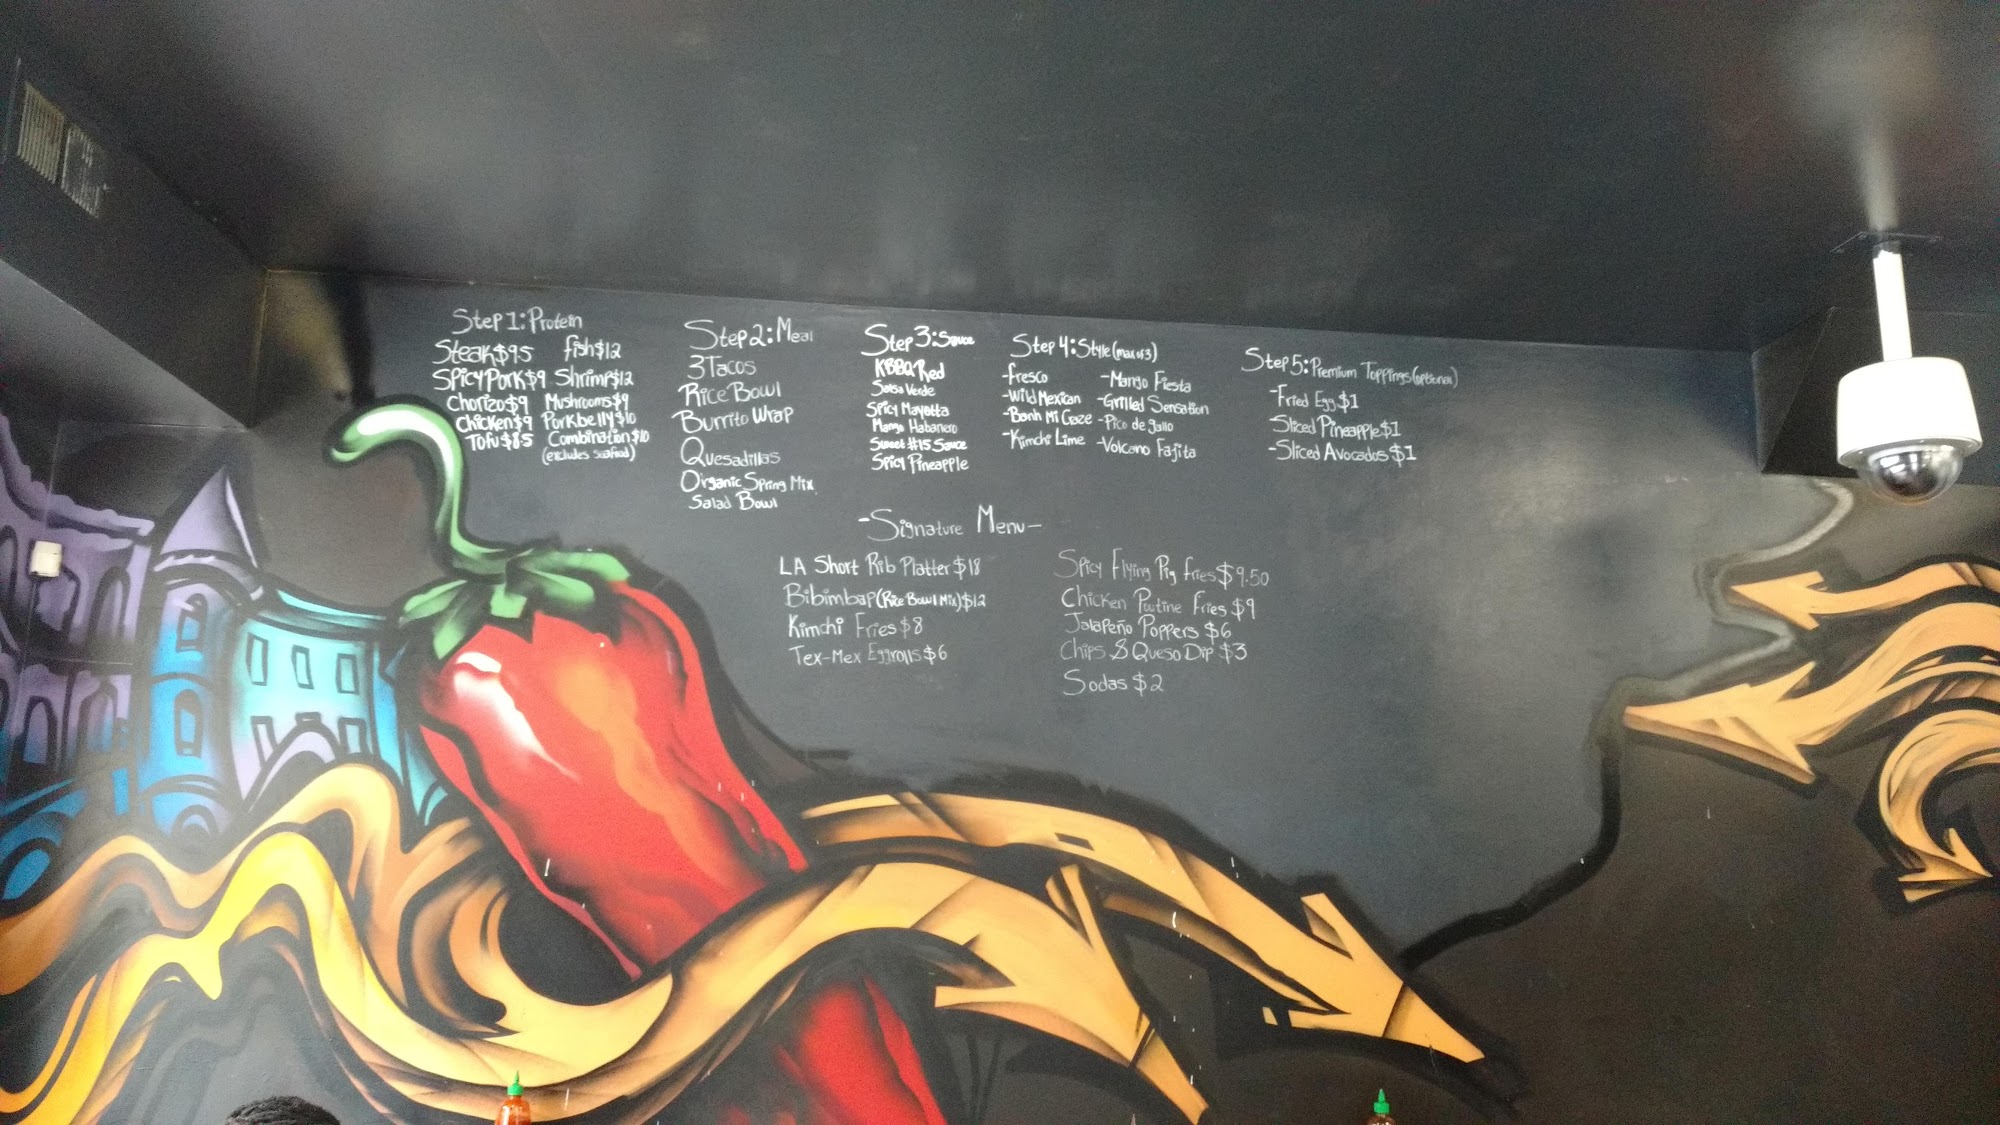 Step 1: Protein
Steak $9.5 fish $12
Spicy Pork $9 Shrimp $12
Chorizo $9 Mushrooms $9
Chicken $9 Porkbelly $10
Tofu $8.5 Combination $10
(excludes seafood)
Step 2: Meal
3 Tacos
Rice Bowl
Burrito Wrap
Quesadillas
Organic Spring Mix
Salad Bowl
Step 3: Sauce
KBBQ Red
Salsa Verde
Spicy Mayotta
Mango Habanero
Sweet #15 Sauce
Spicy Pineapple
Step 4: Style (max of 3)
-fresco -Mango Fiesta
-Wild Mexican -Grilled Sensation
-Banh Mi Craze -Pico de gallo
-Kimchi Lime -Volcano Fajita
Step 5: Premium Toppings (optional)
-Fried Egg $1
-Sliced Pineapple $1
-Sliced Avocados $1
-Signature Menu-
LA Short Rib Platter $18
Bibimbap (Rice Bowl Mix) $12
Kimchi Fries $8
Tex-Mex Eggrolls $6
Spicy Flying Pig fries $9.50
Chicken Poutine Fries $9
Jalapeño Poppers $6
Chips & Queso Dip $3
Sodas $2